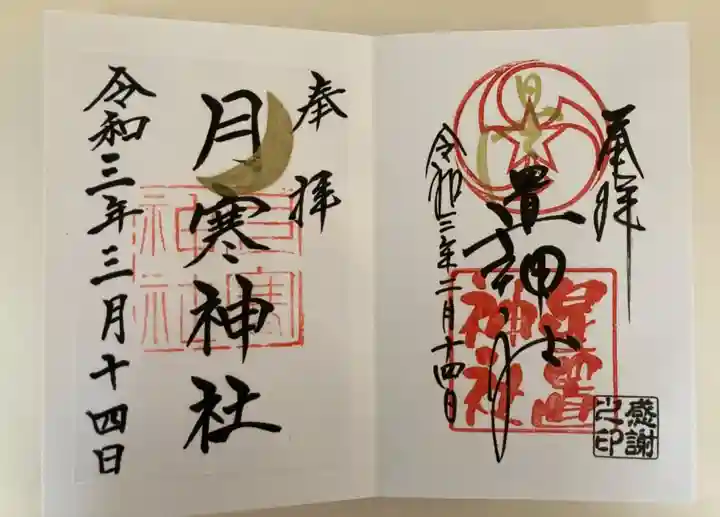 奉拝
神社
令和三年二月十四日
感謝
之印
奉拝
月寒神社
月寒
神社
令和三年三月十四日